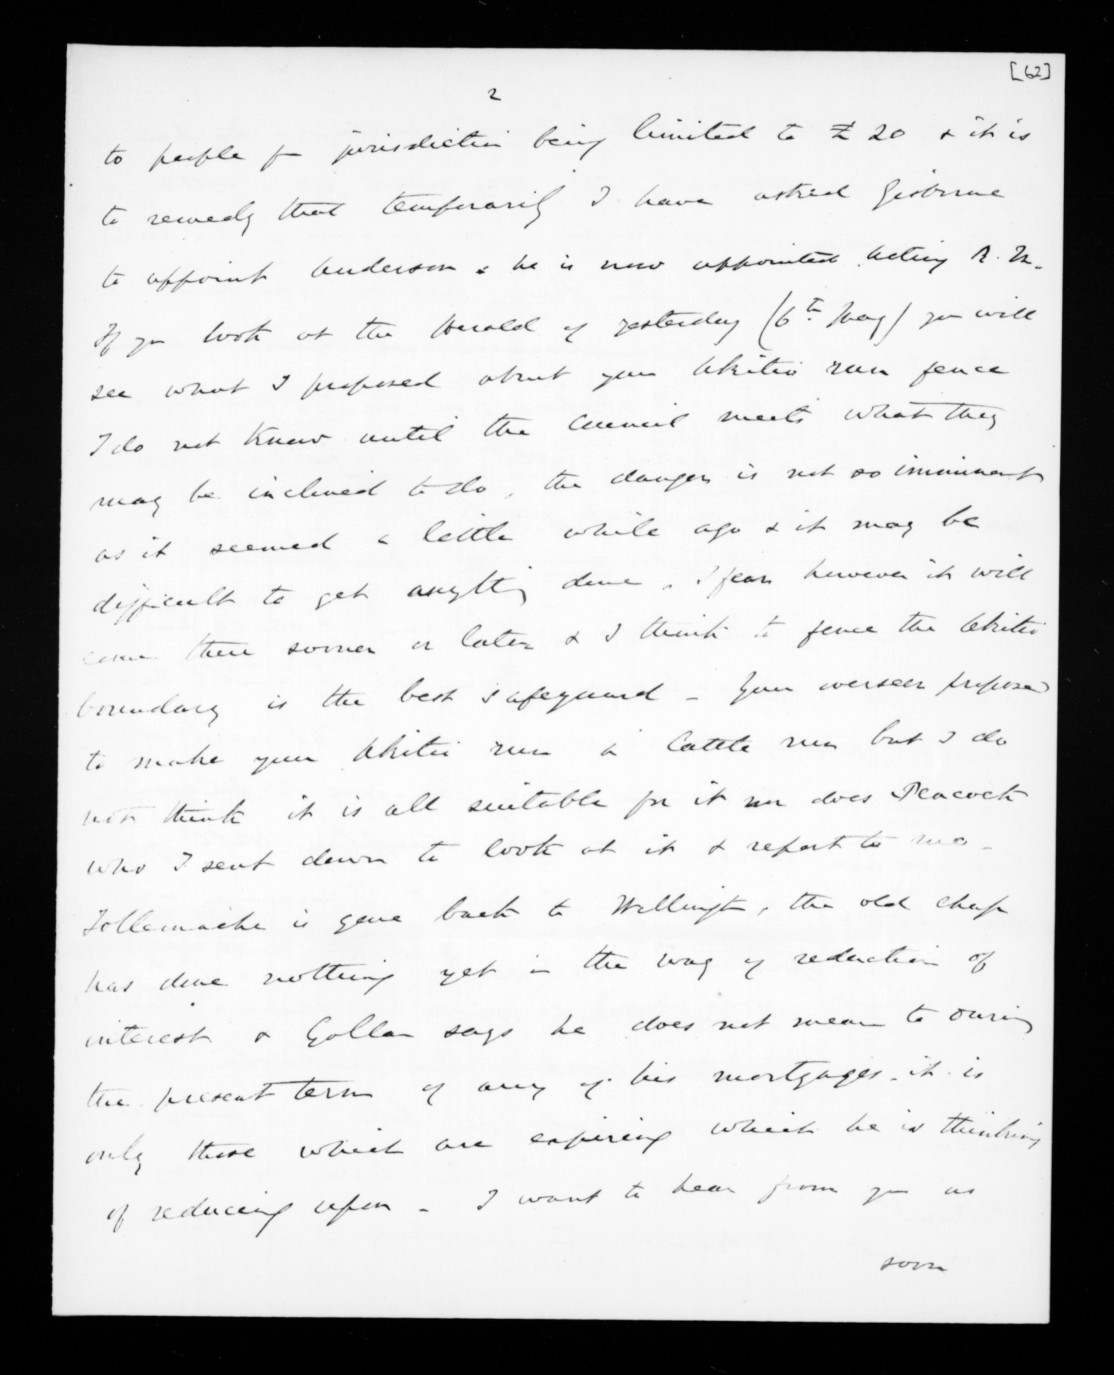 [62]
2
to people for jurisdiction being limited to £20 & it is
to remedy that temporarily I have asked Gisborne
to appoint Anderson & he is now appointed Acting R.M.
If you look at the Herald of yesterday (6th May) you will
see what I proposed about your Akitio run fence
I do not know until the Council meets what they
may be inclined to do, the danger is not so imminent
as it seemed a little while ago & it may be
difficult to get anything done. I fear however it will
come there sooner or later & I think to fence the Akitio
boundary is the best safeguard - Your overseer proposed
to make your Akitio run a Cattle run but I do
not think it is all suitable for it nor does Peacock
who I sent down to look at it & report to me -
Tollemache is gone back to Wellington, the old chap
has done nothing yet in the way of reduction of
interest & Gollan says he does not mean to during
the present term of any of his mortgages. it is
only those which are expiring which he is thinking
of reducing upon - I want to hear from you as
soon